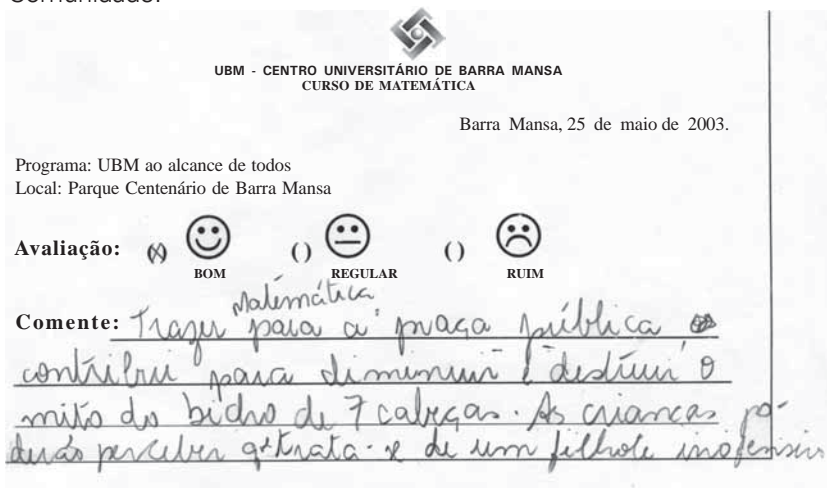 Comunidade.
UBM - CENTRO UNIVERSITÁRIO DE BARRA MANSA
CURSO DE MATEMÁTICA
Barra Mansa, 25 de maio de 2003.
Programa: UBM ao alcance de todos
Local: Parque Centenário de Barra Mansa
Avaliação: (X) BOM ( ) REGULAR ( ) RUIM
Matemática
Comente: Trazer para a praça pública
contribui para diminuir e destruir o
mito do bicho de 7 cabeças. As crianças po-
derão perceber q trata-se de um filhote inofensivo